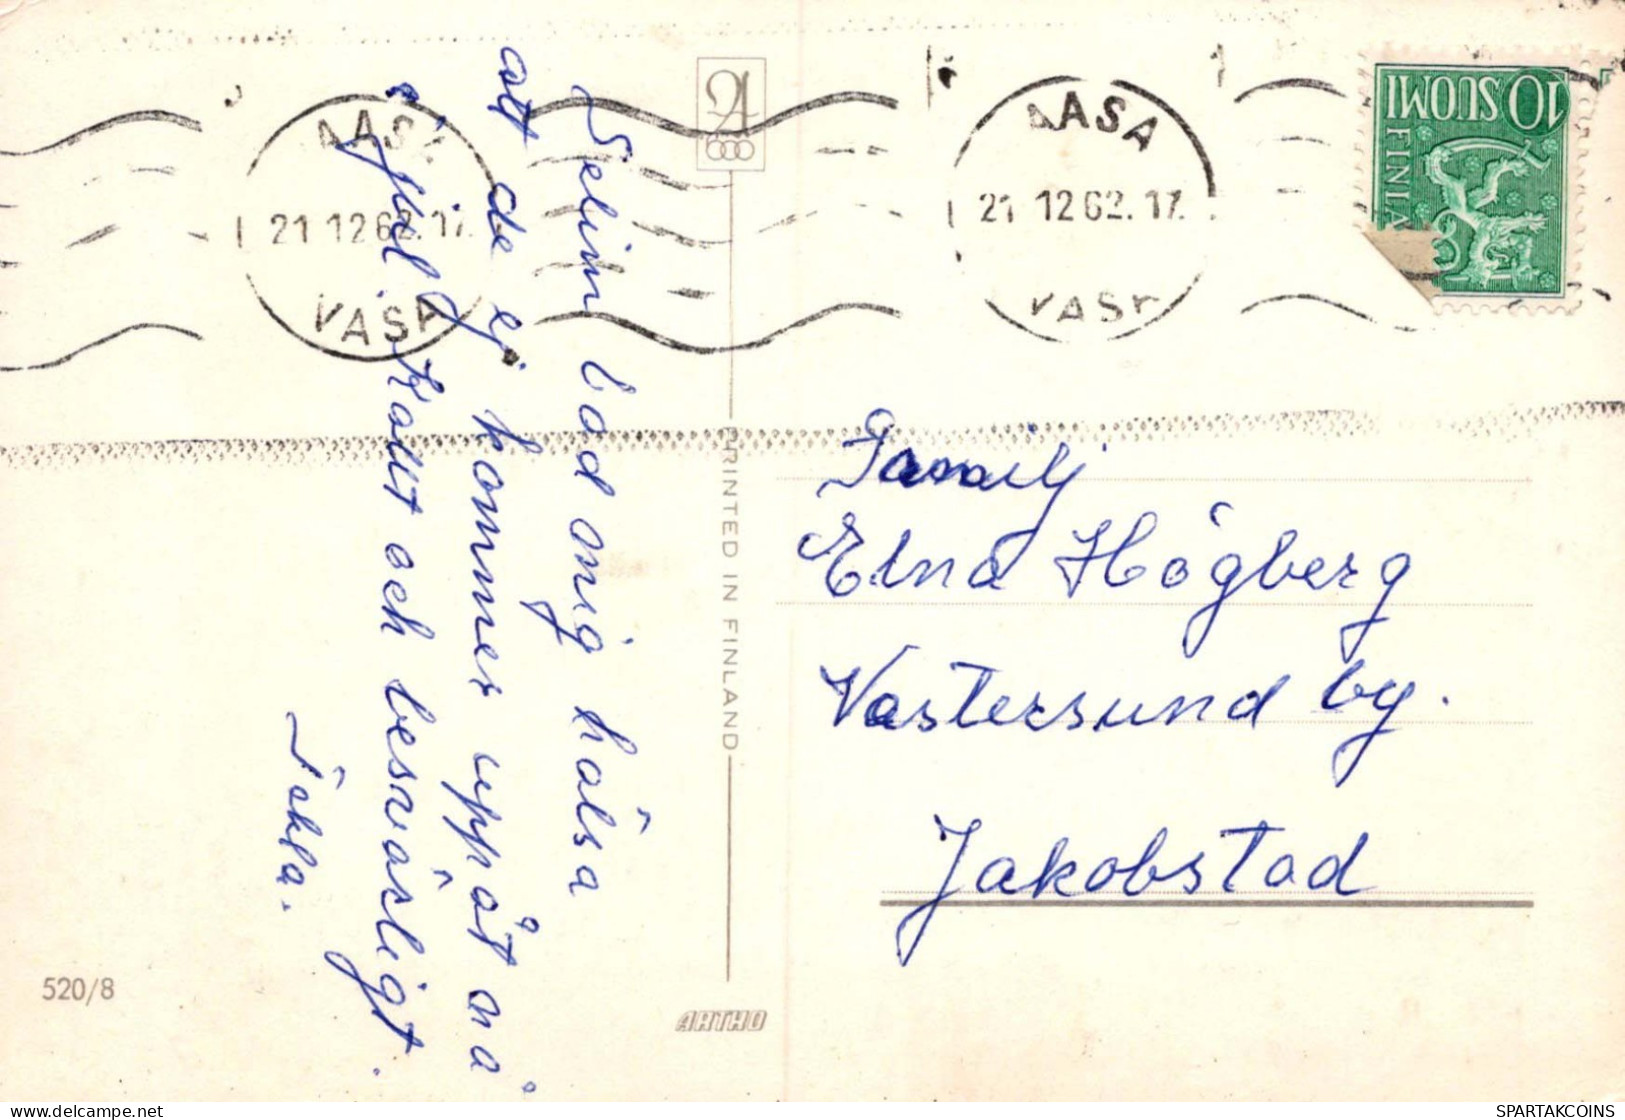 Selim bad mig hälsa
att de ej kommer uppåt nå
i jul. Kallt och besvärligt.
Tekla.
VAASA
21.12.62.17
VASA
AASA
21.12.62.17.
VASA
10 SUOMI
FINLA
PRINTED IN FINLAND
Familj
Elna Högberg
Västersund by.
Jakobstad
520/8
ARTKO
SPARTAKCOINS
delcampe.net